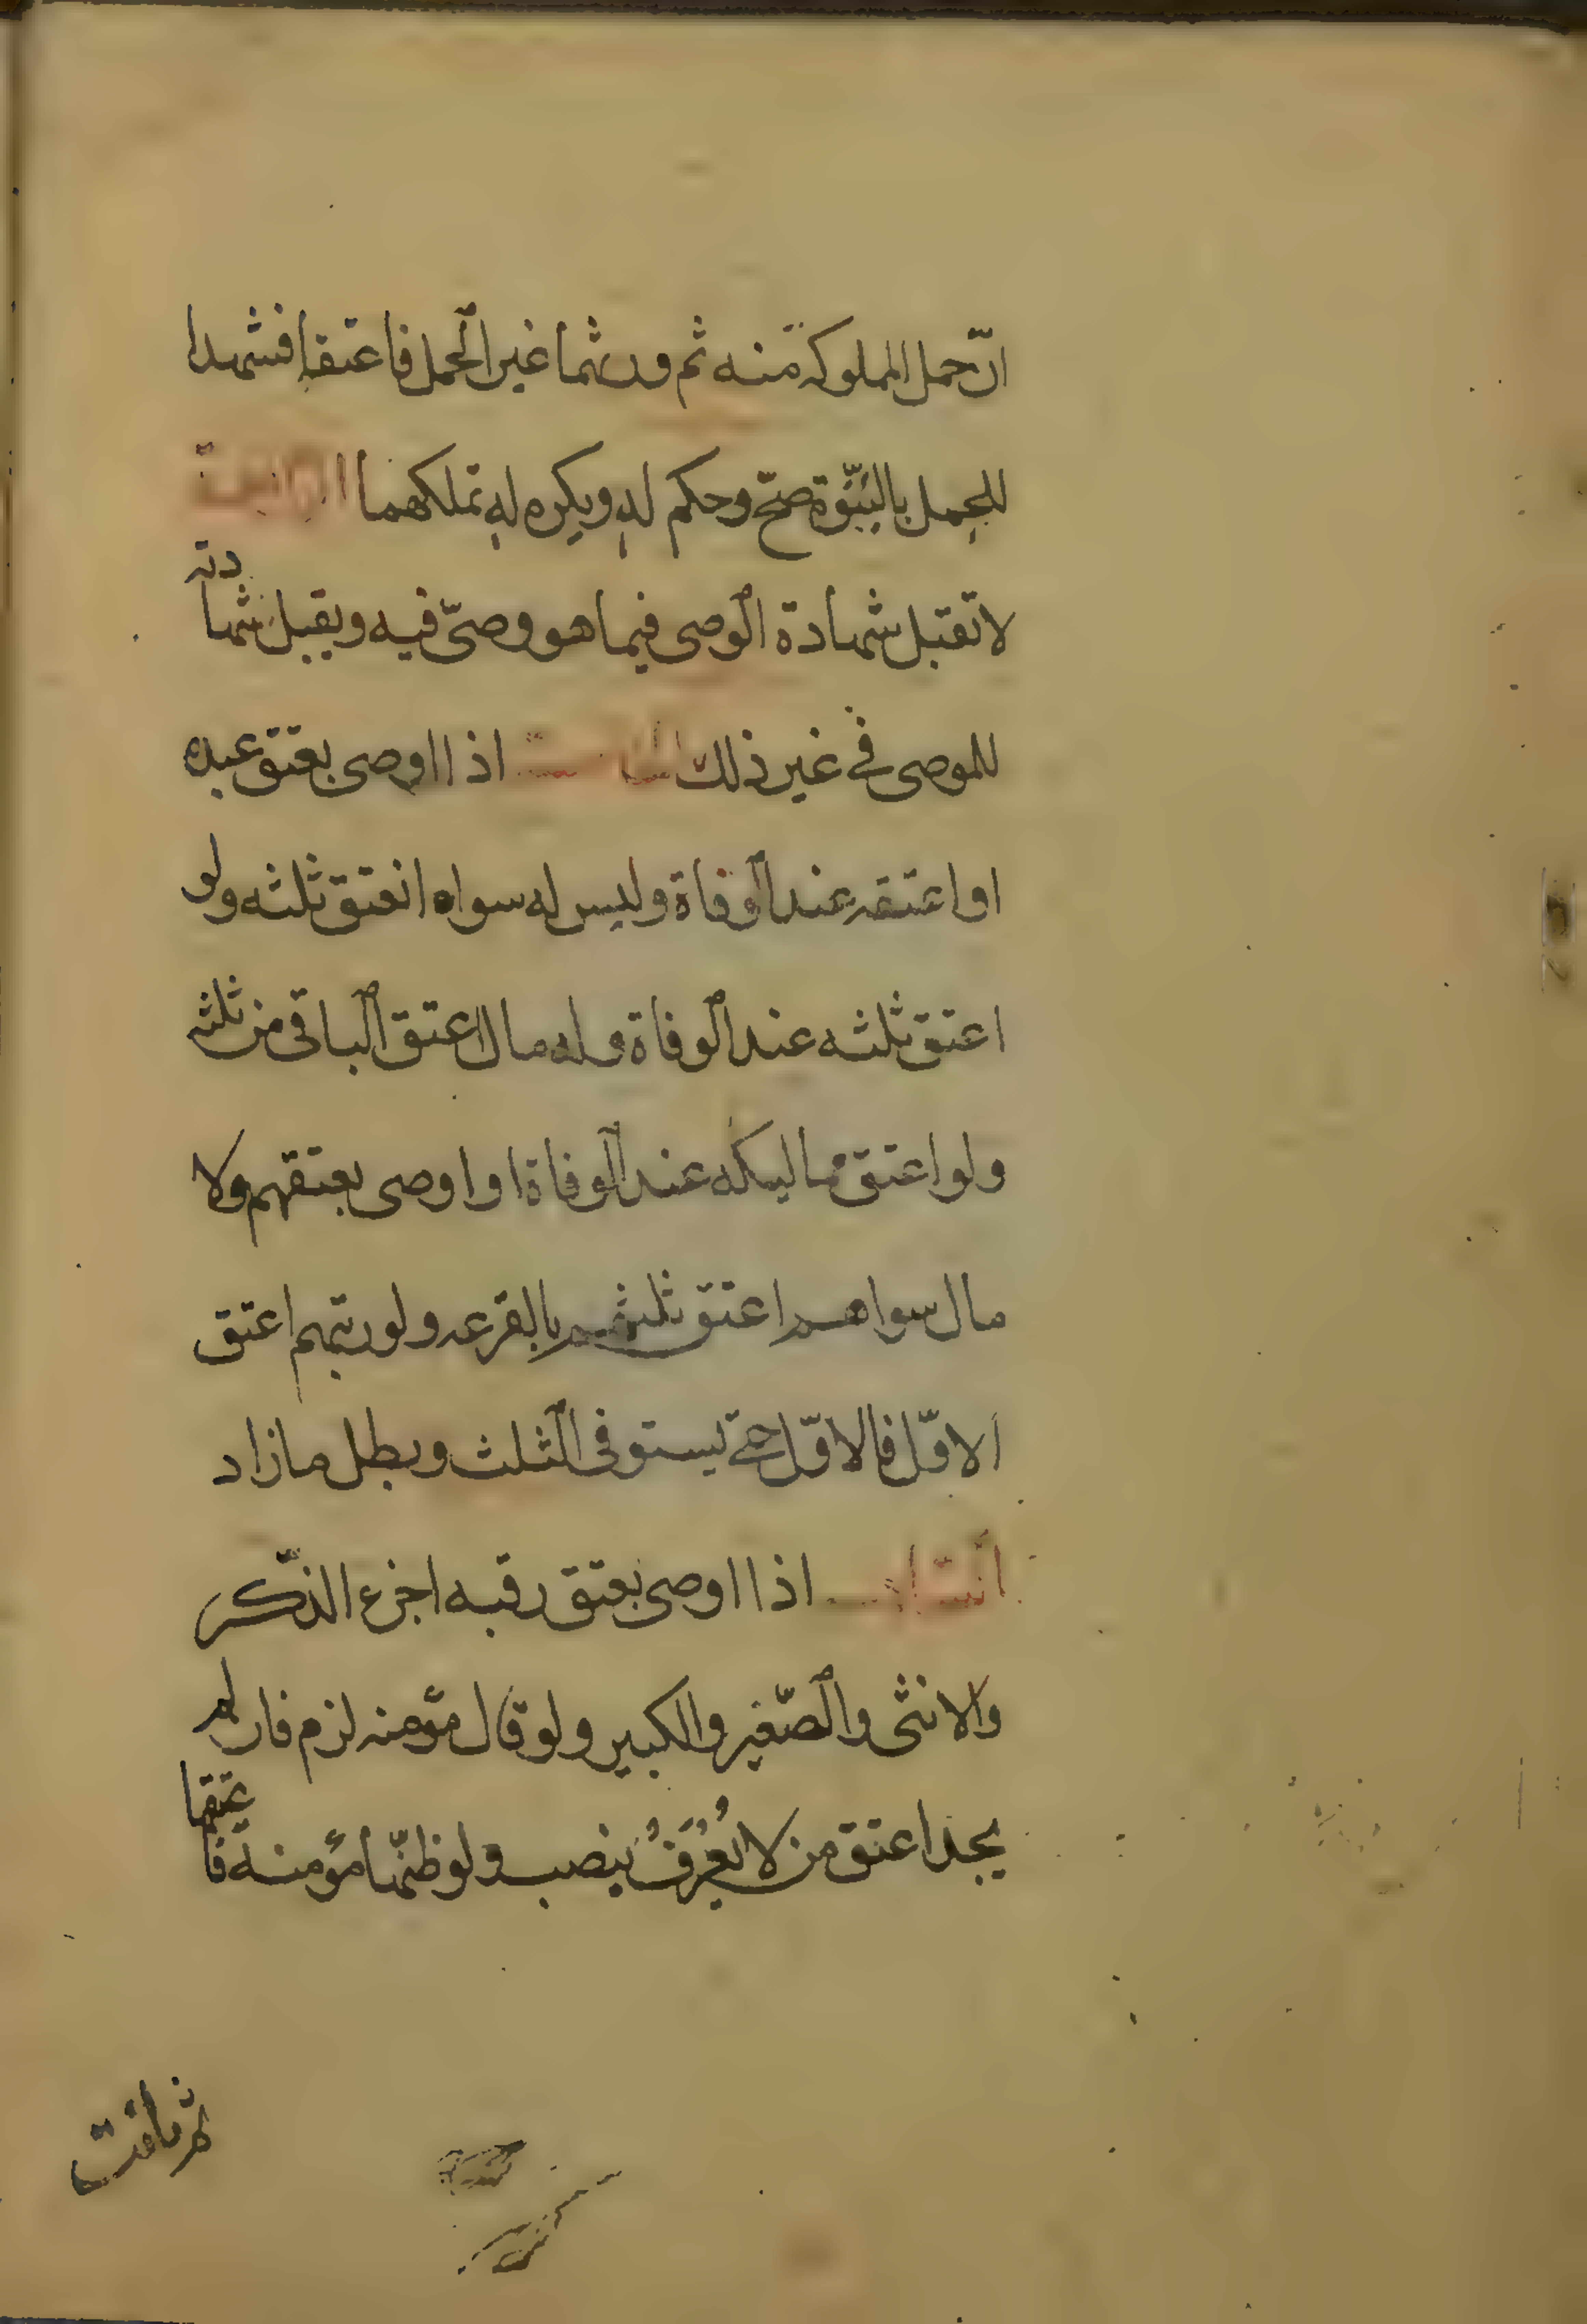 انّ حمل المملوكة منه ثم ورثهما غير الحمل فاعتقا فشهدا
للحمل بالبنوّة صحّ وحكم له ويكره له تملكهما
لا تقبل شهادة الوصى فيما هو وصىّ فيه ويقبل شهادته
للموصى فى غير ذلك اذا اوصى بعتق عبده
او اعتقه عند الوفاة وليس له سواه انعتق ثلثه ولو
اعتق ثلثه عند الوفاة وله مال اعتق الباقى من ثلثه
ولو اعتق مماليكه عند الوفاة او اوصى بعتقهم ولا
مال سواهم اعتق ثلثهم بالقرعه ولو رتبهم اعتق
الاوّل فالاوّل حتى يستوفى الثلث وبطل ما زاد
اذا اوصى بعتق رقبه اجزء الذّكر
والانثى والصّغير والكبير ولو قال مؤمنه لزم فان لم
يجد اعتق من لا يُعْرَفُ بنصب ولو ظنّها مؤمنه فاعتقها
ثم بانت